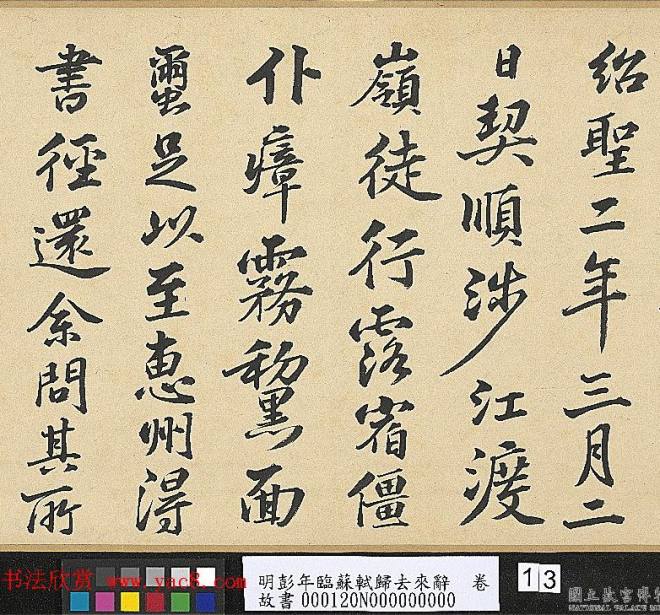 紹聖二年三月二
日契順涉江渡
嶺徒行露宿僵
仆瘴霧黎面
蠒足以至惠州得
書徑還余問其所
书法欣赏
www.yac8.com
明彭年臨蘇軾歸去來辭 卷
故書 000120N000000000
1 3
國立故宮博
NATIONAL PALACE